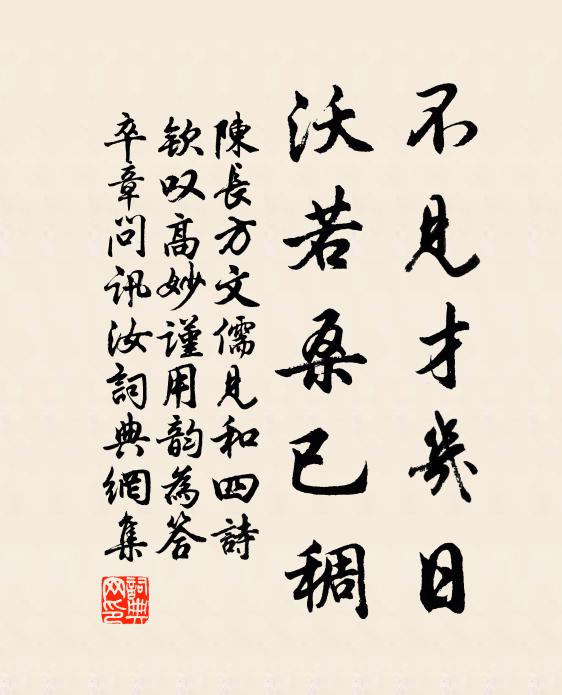 不見才幾日
沃若桑已稠
陳長方文儒見和四詩
欽叹高妙謹用韵為答
卒章問訊汝詞典網集
詞典网印